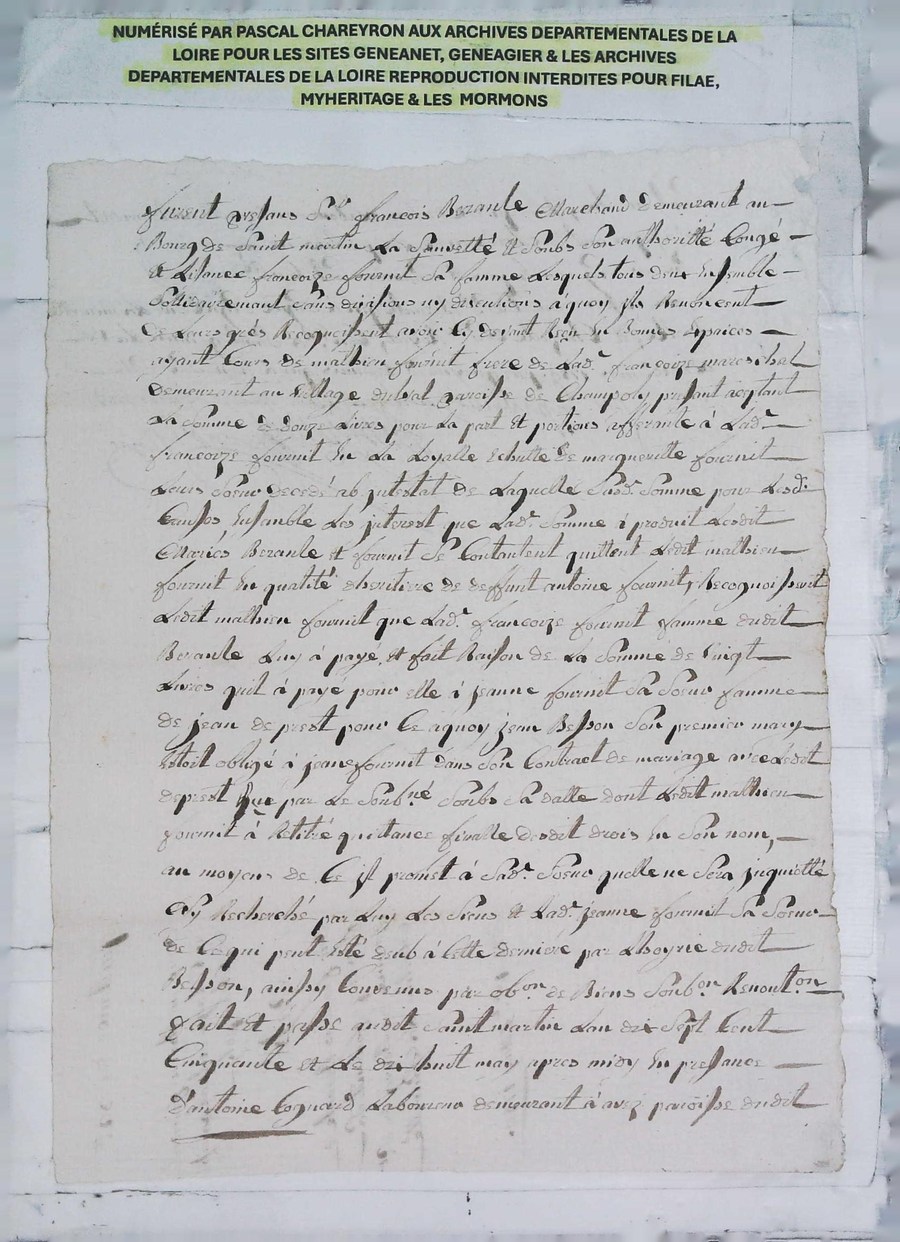 NUMÉRISÉ PAR PASCAL CHAREYRON AUX ARCHIVES DEPARTEMENTALES DE LA
LOIRE POUR LES SITES GENEANET, GENEAGIER & LES ARCHIVES
DEPARTEMENTALES DE LA LOIRE REPRODUCTION INTERDITES POUR FILAE,
MYHERITAGE & LES MORMONS
furent presans Sr. francois Beraule Marchand demeurant au
Bourg de Saint martin La Sauvetté et Soubs Son authoritté Congé
et Lisance francoize fournit Sa famme Lesquels tous deux ensemble
Sollidairemant Sans divisions ny discutions a quoy ils Renoncent
de Leurs grés Recognoissent avoir Cy devant Reçu en Bonnes Espaices
ayant Cours de mathieu fournit frere de Lade. francoize mareschal
demeurant au village paroisse de Champoly presant aceptant
La somme de douze Livres pour La part et portions afferante à Lade.
francoize fournit en La Loyalle Echutte de margueritte fournit
Leurs Soeur decedé ab intestat de Laquelle Susde. Somme pour Lesde.
Causes ensamble Les interest que Lade. Somme à produit Lesdit
Mariés Beraule et fournit Se Contantent quittent Ledit mathieu
fournit en qualité d'heritiere de deffunt antoine fournit, Recognoissent
Ledit mathieu fournit que Lade. francoize fournit famme dudit
Beraule Luy à payé et fait Raison de La Somme de vingt
Livres quil à payé pour elle à jeanne fournit Sa Soeur famme
de jean de prest pour Ce aquoy jean Besson Son premier mary
Estoit obligé à jeane fournit dans Son Contract de mariage avec Ledit
deprest Reçu par Le Soubné Soubs Sa datte dont Ledit mathieu
fournit à Retiré quittance finalle desdit drois en Son nom,
au moyens de Ce il promet à Sade. Soeur quelle ne Sera inquietté
Ny Recherché par Luy Les Siens et Lade. jeanne fournit Sa Soeur
de Ce qui peut Esté deub à Cette derniere par Lhoyrie dudit
Besson, ainssy Convenus par obon. de Biens Soubon Renoution
fait et passé audit Saint martin Lan dix Sept Cent
Cinquante et Le dix huit may apres midy en presance
D'antoine Cognard Laboureur demeurant à avez paroisse dudit